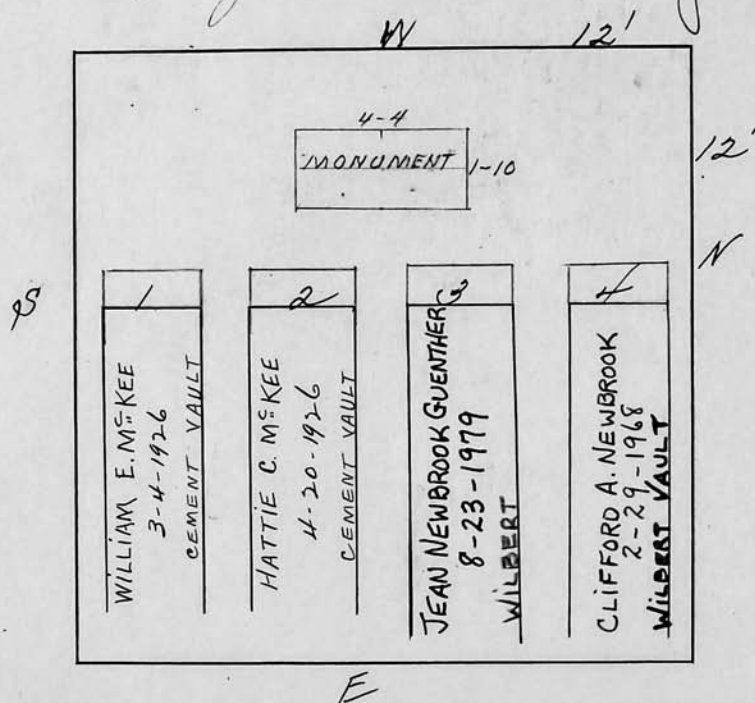 W 12'
4-4
MONUMENT 1-10
12'
N
S
1
WILLIAM E. McKEE
3-4-1926
CEMENT VAULT
2
HATTIE C. McKEE
4-20-1926
CEMENT VAULT
3
JEAN NEWBROOK GUENTHER
8-23-1979
WILBERT
4
CLIFFORD A. NEWBROOK
2-29-1968
WILBERT VAULT
E